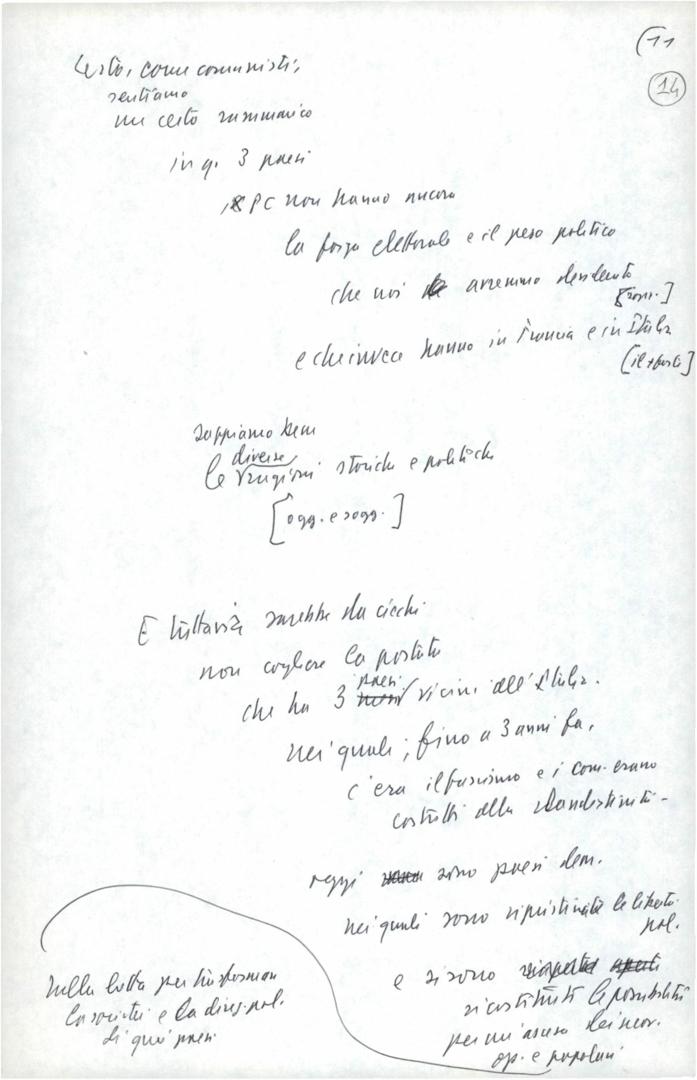 (11
14
Certo, come comunisti,
sentiamo
un certo rammarico
in q. 3 paesi
i PC non hanno ancora
la forza elettorale e il peso politico
che noi avremmo desiderato
e che invece hanno in Francia e in Italia
sappiamo bene
diverse
le ragioni storiche e politiche
[ogg. e sogg.]
E tuttavia sarebbe da ciechi
non cogliere la portata
che ha 3 paesi vicini all'Italia.
nei quali, fino a 3 anni fa,
c'era il fascismo e i com. erano
costretti alla clandestinità -
oggi sono paesi dem.
nei quali sono ripristinate le libertà
pol.
e si sono
ricostituite le possibilità
per un'ascesa dei mov.
op. e popolari
nella lotta per trasformare
la società e la direz. pol.
di quei paesi